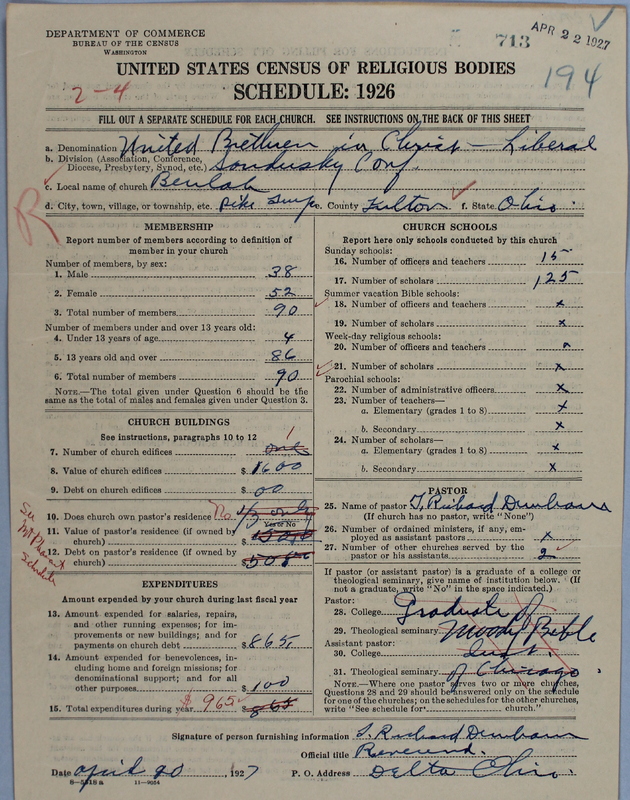 DEPARTMENT OF COMMERCE
BUREAU OF THE CENSUS
WASHINGTON
713
APR 22 1927
194
2-4
UNITED STATES CENSUS OF RELIGIOUS BODIES
SCHEDULE: 1926
FILL OUT A SEPARATE SCHEDULE FOR EACH CHURCH. SEE INSTRUCTIONS ON THE BACK OF THIS SHEET
a. Denomination United Brethren in Christ - Liberal
b. Division (Association, Conference, Diocese, Presbytery, Synod, etc.) Sandusky Conf.
c. Local name of church Beulah
d. City, town, village, or township, etc. Pike Twp e. County Fulton f. State Ohio
R
MEMBERSHIP
Report number of members according to definition of
member in your church
Number of members, by sex:
1. Male 38
2. Female 52
3. Total number of members 90
Number of members under and over 13 years old:
4. Under 13 years of age 4
5. 13 years old and over 86
6. Total number of members 90
NOTE.—The total given under Question 6 should be the
same as the total of males and females given under Question 3.
CHURCH BUILDINGS
See instructions, paragraphs 10 to 12
7. Number of church edifices one 1
8. Value of church edifices $ 1600
9. Debt on church edifices $ 00
10. Does church own pastor's residence No 1/3 only
Yes or No
11. Value of pastor's residence (if owned by
church) $
12. Debt on pastor's residence (if owned by
church) $
See
Schedule
EXPENDITURES
Amount expended by your church during last fiscal year
13. Amount expended for salaries, repairs,
and other running expenses; for im-
provements or new buildings; and for
payments on church debt $ 865
14. Amount expended for benevolences, in-
cluding home and foreign missions; for
denominational support; and for all
other purposes $ 100
15. Total expenditures during year $ 965 $ 865
CHURCH SCHOOLS
Report here only schools conducted by this church
Sunday schools:
16. Number of officers and teachers 15
17. Number of scholars 125
Summer vacation Bible schools:
18. Number of officers and teachers x
19. Number of scholars x
Week-day religious schools:
20. Number of officers and teachers x
21. Number of scholars x
Parochial schools:
22. Number of administrative officers x
23. Number of teachers—
a. Elementary (grades 1 to 8) x
b. Secondary x
24. Number of scholars—
a. Elementary (grades 1 to 8) x
b. Secondary x
PASTOR
25. Name of pastor T. Richard
(If church has no pastor, write "None")
26. Number of ordained ministers, if any, em-
ployed as assistant pastors x
27. Number of other churches served by the
pastor or his assistants 2
If pastor (or assistant pastor) is a graduate of a college or
theological seminary, give name of institution below. (If
not a graduate, write "No" in the space indicated.)
Pastor:
28. College Graduate of
29. Theological seminary Moody Bible
Assistant pastor:
30. College Inst
31. Theological seminary of Chicago
NOTE.—Where one pastor serves two or more churches,
Questions 28 and 29 should be answered only on the schedule
for one of the churches; on the schedules for the other churches,
write "See schedule for church."
Signature of person furnishing information T. Richard
Official title Reverend.
Date April 20 1927 P. O. Address Delta Ohio.
8—5518 a 11—9054